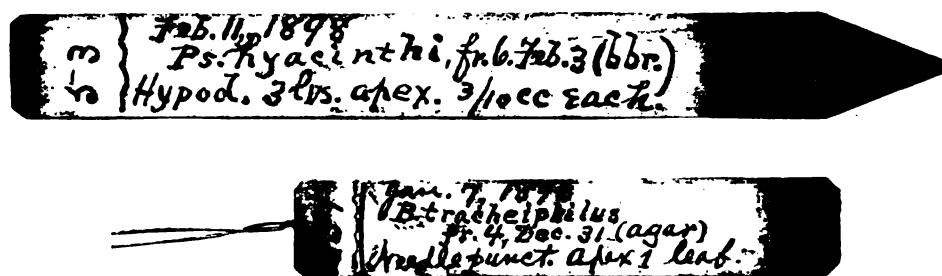 53
Feb. 11, 1898
Ps. hyacinthi, fr. 6. Feb. 3 (bbr.)
Hypod. 3 lvs. apex. 3/10 cc Each.
Jan. 7, 1898
B. tracheiphilus
Fr. 4, Dec. 31 (agar)
Needle punct. apex 1 leaf.